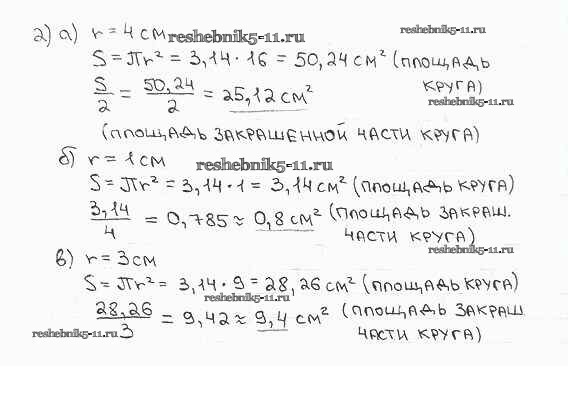 2) а) r = 4 см reshebnik5-11.ru reshebnik5-11.ru
S = πr² = 3,14 · 16 = 50,24 см² (площадь
круга)
S/2 = 50,24/2 = 25,12 см² reshebnik5-11.ru
(площадь закрашенной части круга)
б) r = 1 см reshebnik5-11.ru
S = πr² = 3,14 · 1 = 3,14 см² (площадь круга)
3,14/4 = 0,785 ≈ 0,8 см² (площадь закраш.
части круга)
в) r = 3 см reshebnik5-11.ru
S = πr² = 3,14 · 9 = 28,26 см² (площадь круга)
reshebnik5-11.ru
28,26/3 = 9,42 ≈ 9,4 см² (площадь закраш
reshebnik5-11.ru части круга)